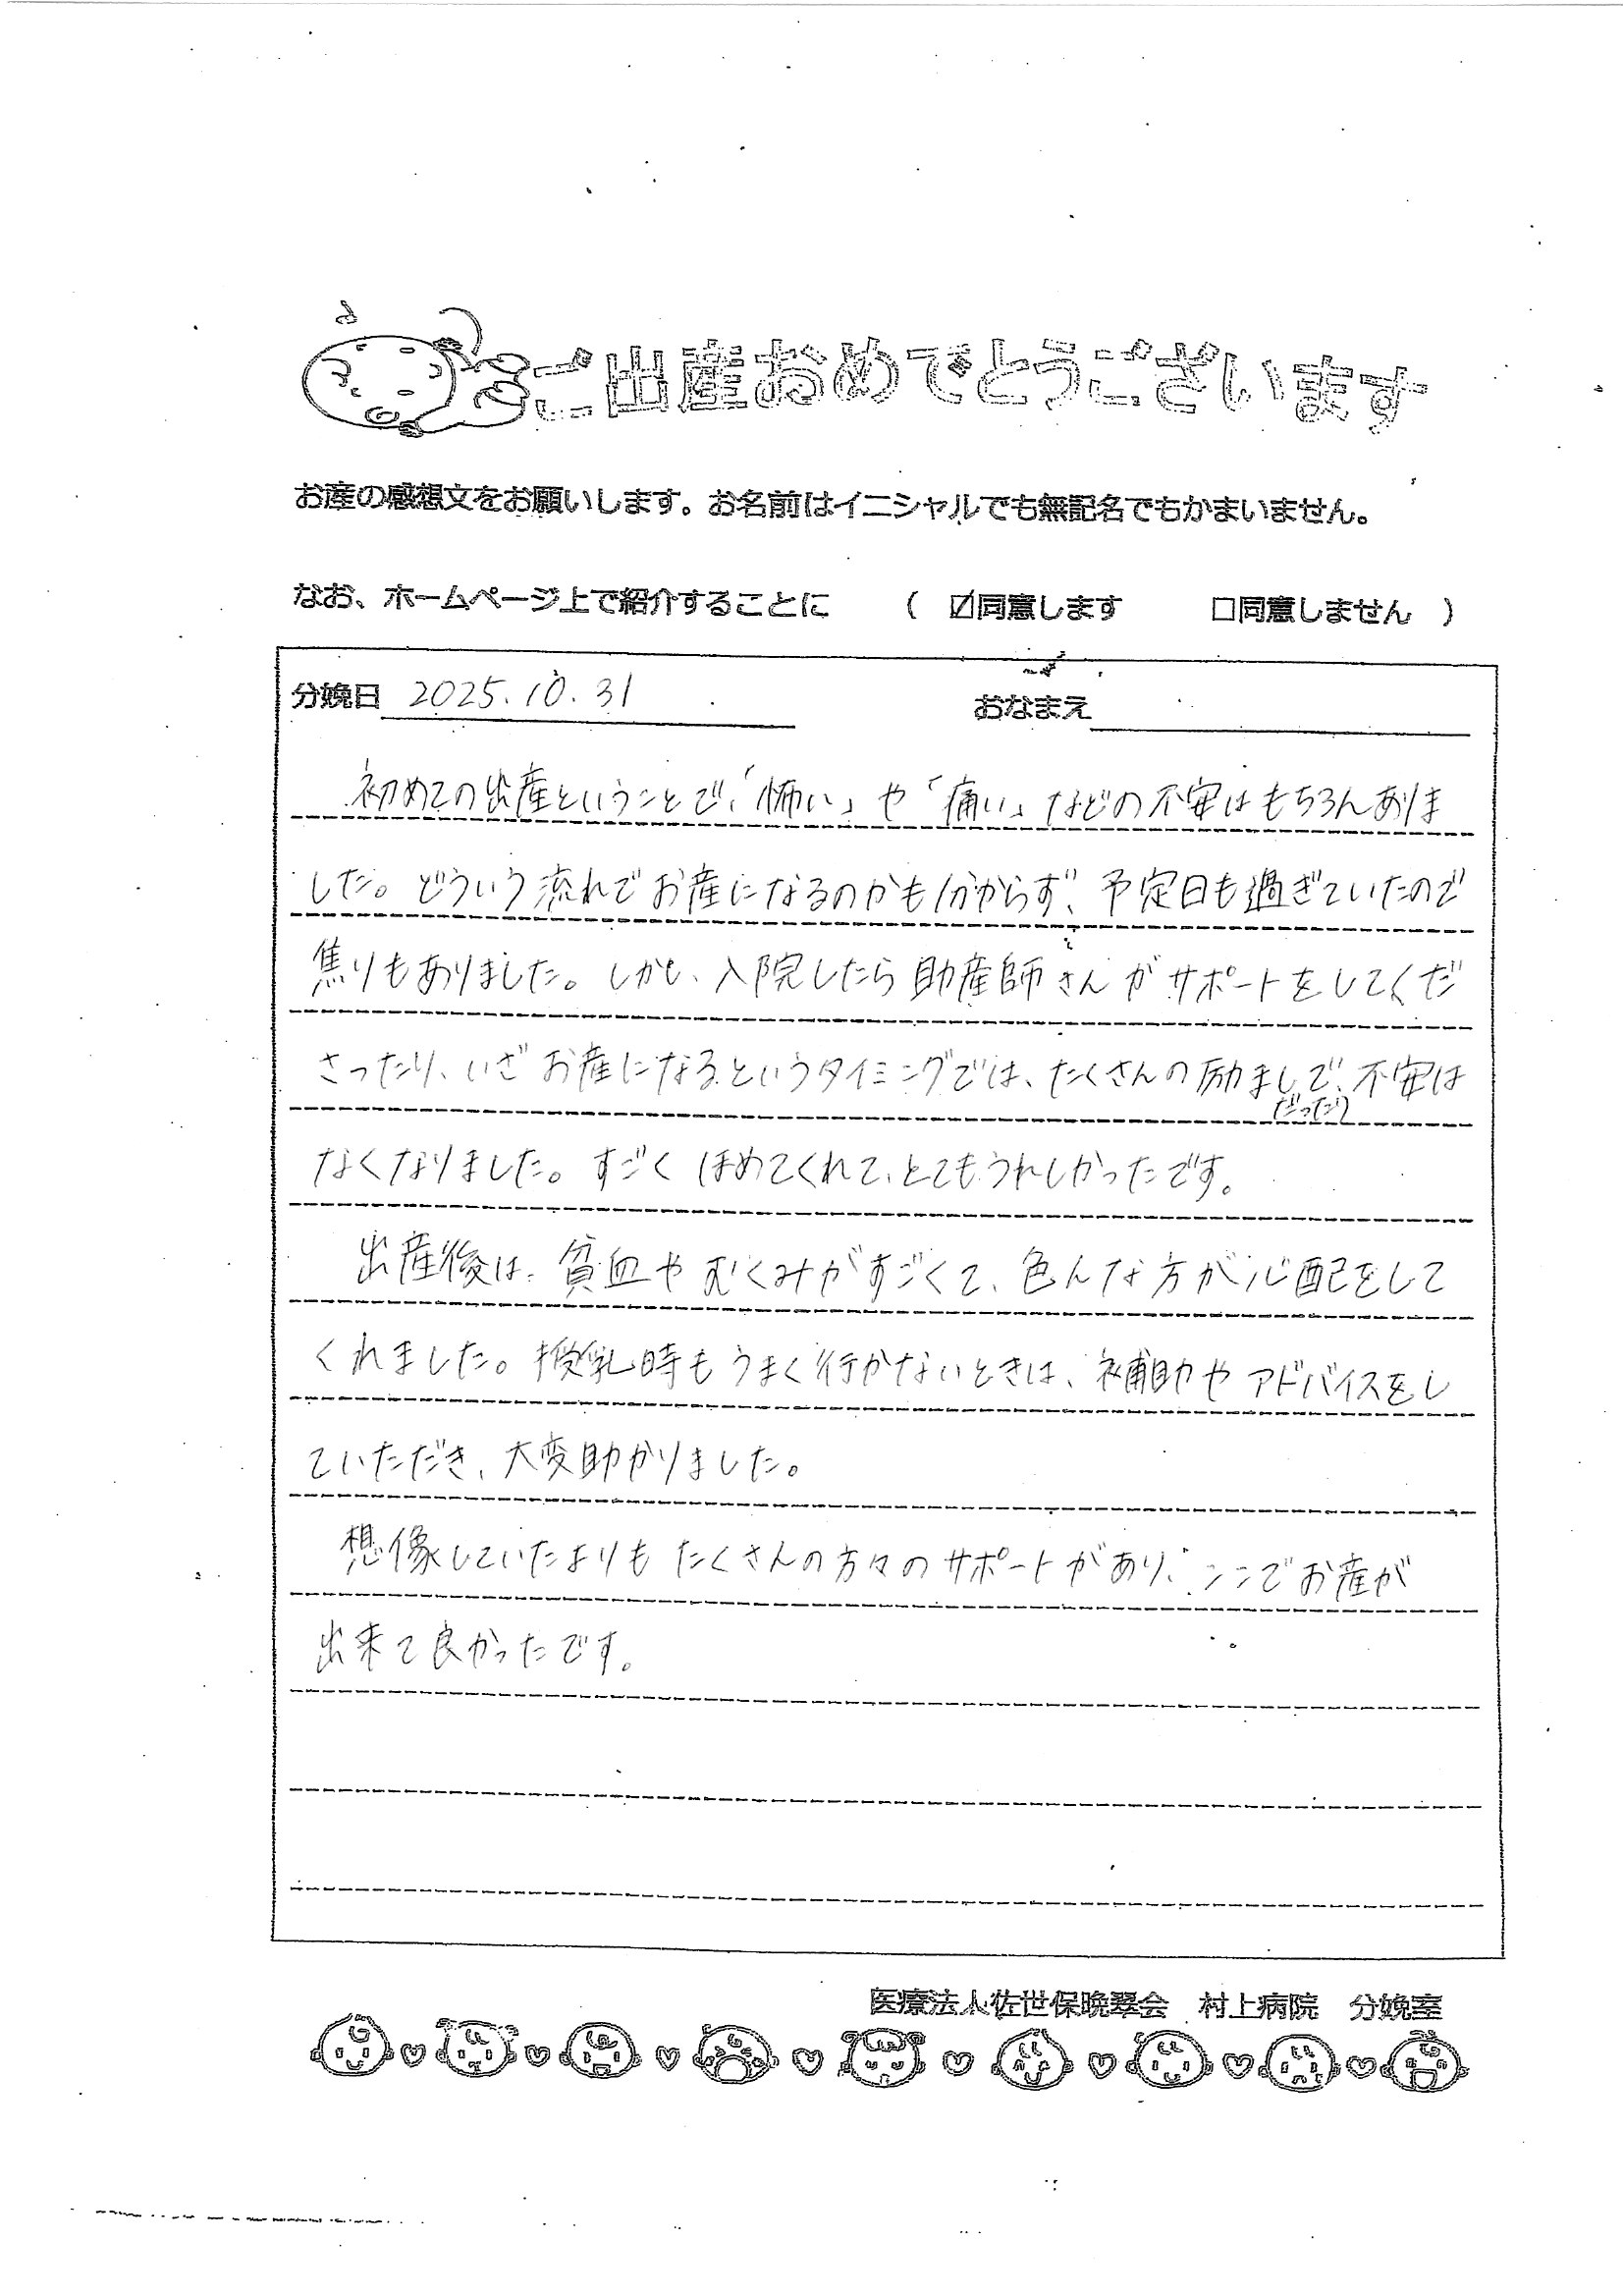 ご出産おめでとうございます
お産の感想文をお願いします。お名前はイニシャルでも無記名でもかまいません。
なお、ホームページ上で紹介することに　（　☑同意します　□同意しません　）
分娩日 2025.10.31　おなまえ
初めての出産ということで、「怖い」や「痛い」などの不安はもちろんありま
した。どういう流れでお産になるのかも分からず、予定日も過ぎていたので
焦りもありました。しかし、入院したら助産師さんがサポートをしてくだ
さったり、いざお産になるというタイミングでは、たくさんの励ましで、不安は
なくなりました。すごくほめてくれて、とてもうれしかったです。
出産後は、貧血やむくみがすごくて、色んな方が心配をして
くれました。授乳時もうまく行かないときは、補助やアドバイスをし
ていただき、大変助かりました。
想像していたよりもたくさんの方々のサポートがあり、ここでお産が
出来て良かったです。
医療法人佐世保晩翠会　村上病院　分娩室